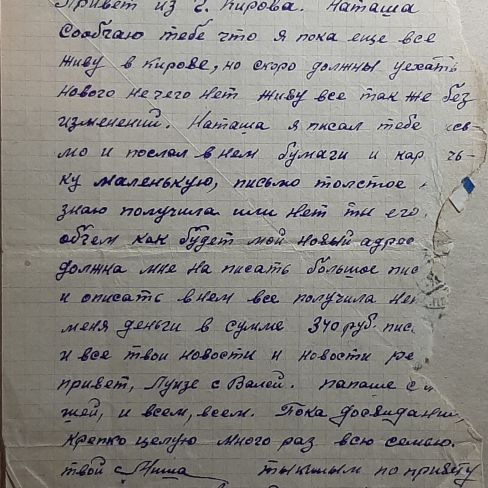 Привет из г. Кирова. Наташа
Сообчаю тебе что я пока еще все
живу в кирове, но скоро должны уехать
нового не чего нет живу все так же без
изменений. Наташа я писал тебе
мо и послал в нем бумаги и кар
ку маленькую, письмо толстое
знаю получила или нет ты его,
объем как будет мой новый адрес
должна мне на писать большое пис
и описать в нем все получила
меня деньги в сумме 340 руб. пис
и все твои новости и новости
привет, Луизе с Валей. папаше с
и всем, всем. Пока досвидани
крепко целую много раз всю семью.
твой с Миша по привету